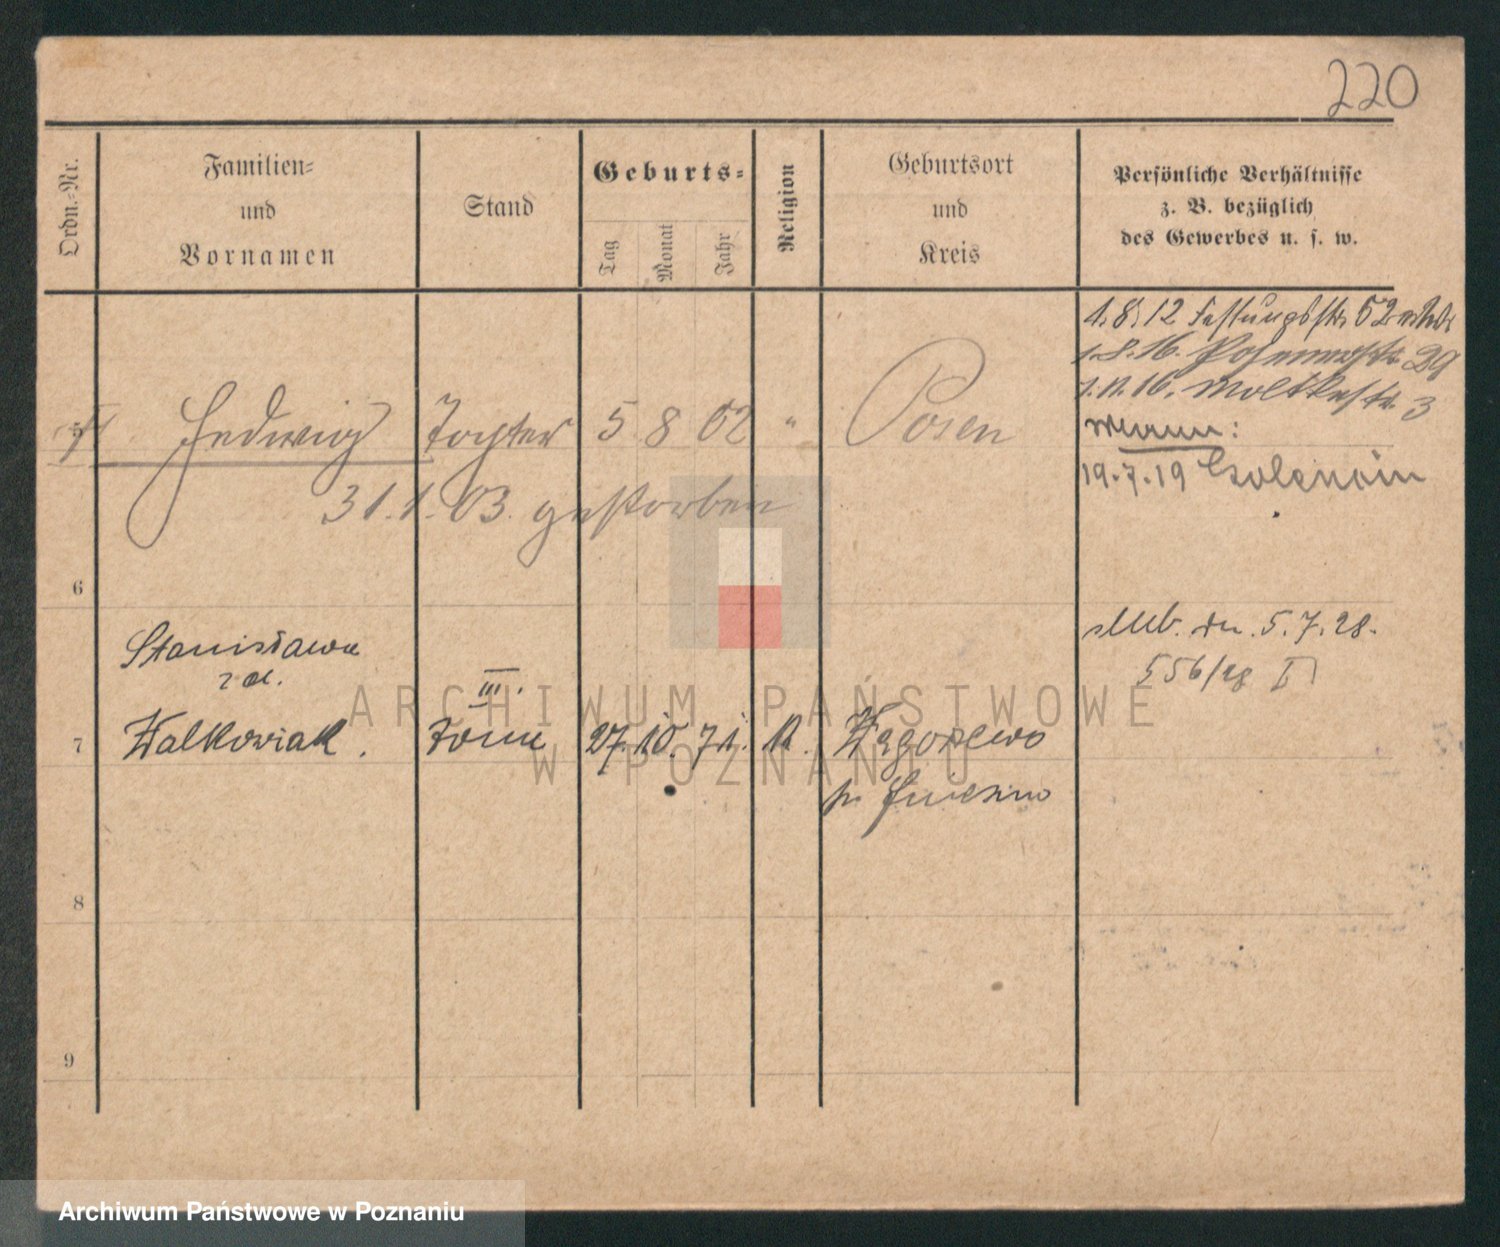 220
Ordn.-Nr.
Familien-
und
Vornamen
Stand
Geburts-
Tag
Monat
Jahr
Religion
Geburtsort
und
Kreis
Persönliche Verhältnisse
z. B. bezüglich
des Gewerbes u. s. w.
1.8.12 Festungsstr 52
1.8.16. Posenerstr 29
1.11.16. Moltkestr. 3
5 Hedwig Tochter 5 8 02 " Posen
19.7.19
31.1.03. gestorben
6
Stanisława
zd.
III.
5.7.28.
556/28 II
7 Walkowiak. żona 27. 10. 71. k. Węgorzewo
p. Gniezno
8
9
ARCHIWUM PAŃSTWOWE
W POZNANIU
Archiwum Państwowe w Poznaniu